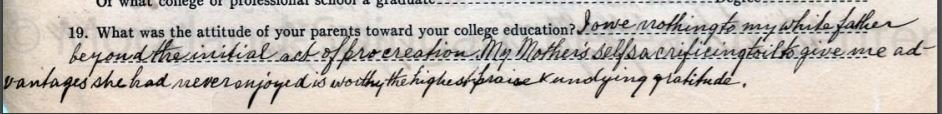 Of what college or professional school a graduate
19. What was the attitude of your parents toward your college education? I owe nothing to my white father
beyond the initial act of procreation. My Mother's self sacrificing toil to give me ad-
vantages she had never enjoyed is worthy the highest praise & undying gratitude.